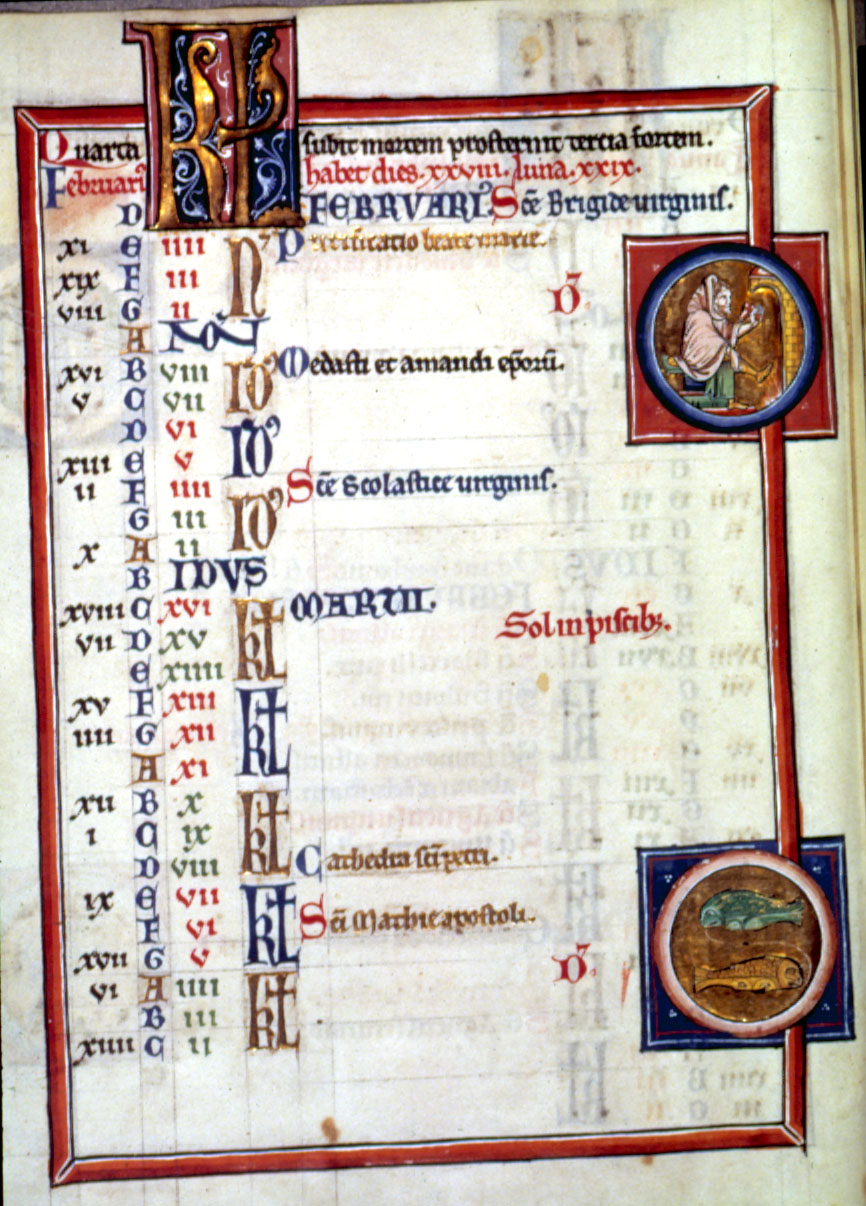 Quarta KL subit mortem prosternit tercia fortem.
Februari' habet dies .xxviii. luna .xxix.
D FEBRVARI'. Sce Brigide uirginis.
xi E iiii N' Purificatio beate marie.
xix F iii
viii G ii D'.
A NON
xvi B viii ID' Vedasti et amandi eporum.
v C vii
D vi ID'
xiii E v
ii F iiii ID' Sce Scolastice uirginis.
G iii
x A ii
B IDVS
xviii C xvi kl MARTII.
vii D xv Sol in piscibz.
E xiiii
xv F xiii kl
iiii G xii
A xi
xii B x kl
i C ix
D viii Cathedra sci petri.
ix E vii kl
F vi Sci Mathie apostoli.
xvii G v D'.
vi A iiii kl
B iii
xiiii C ii